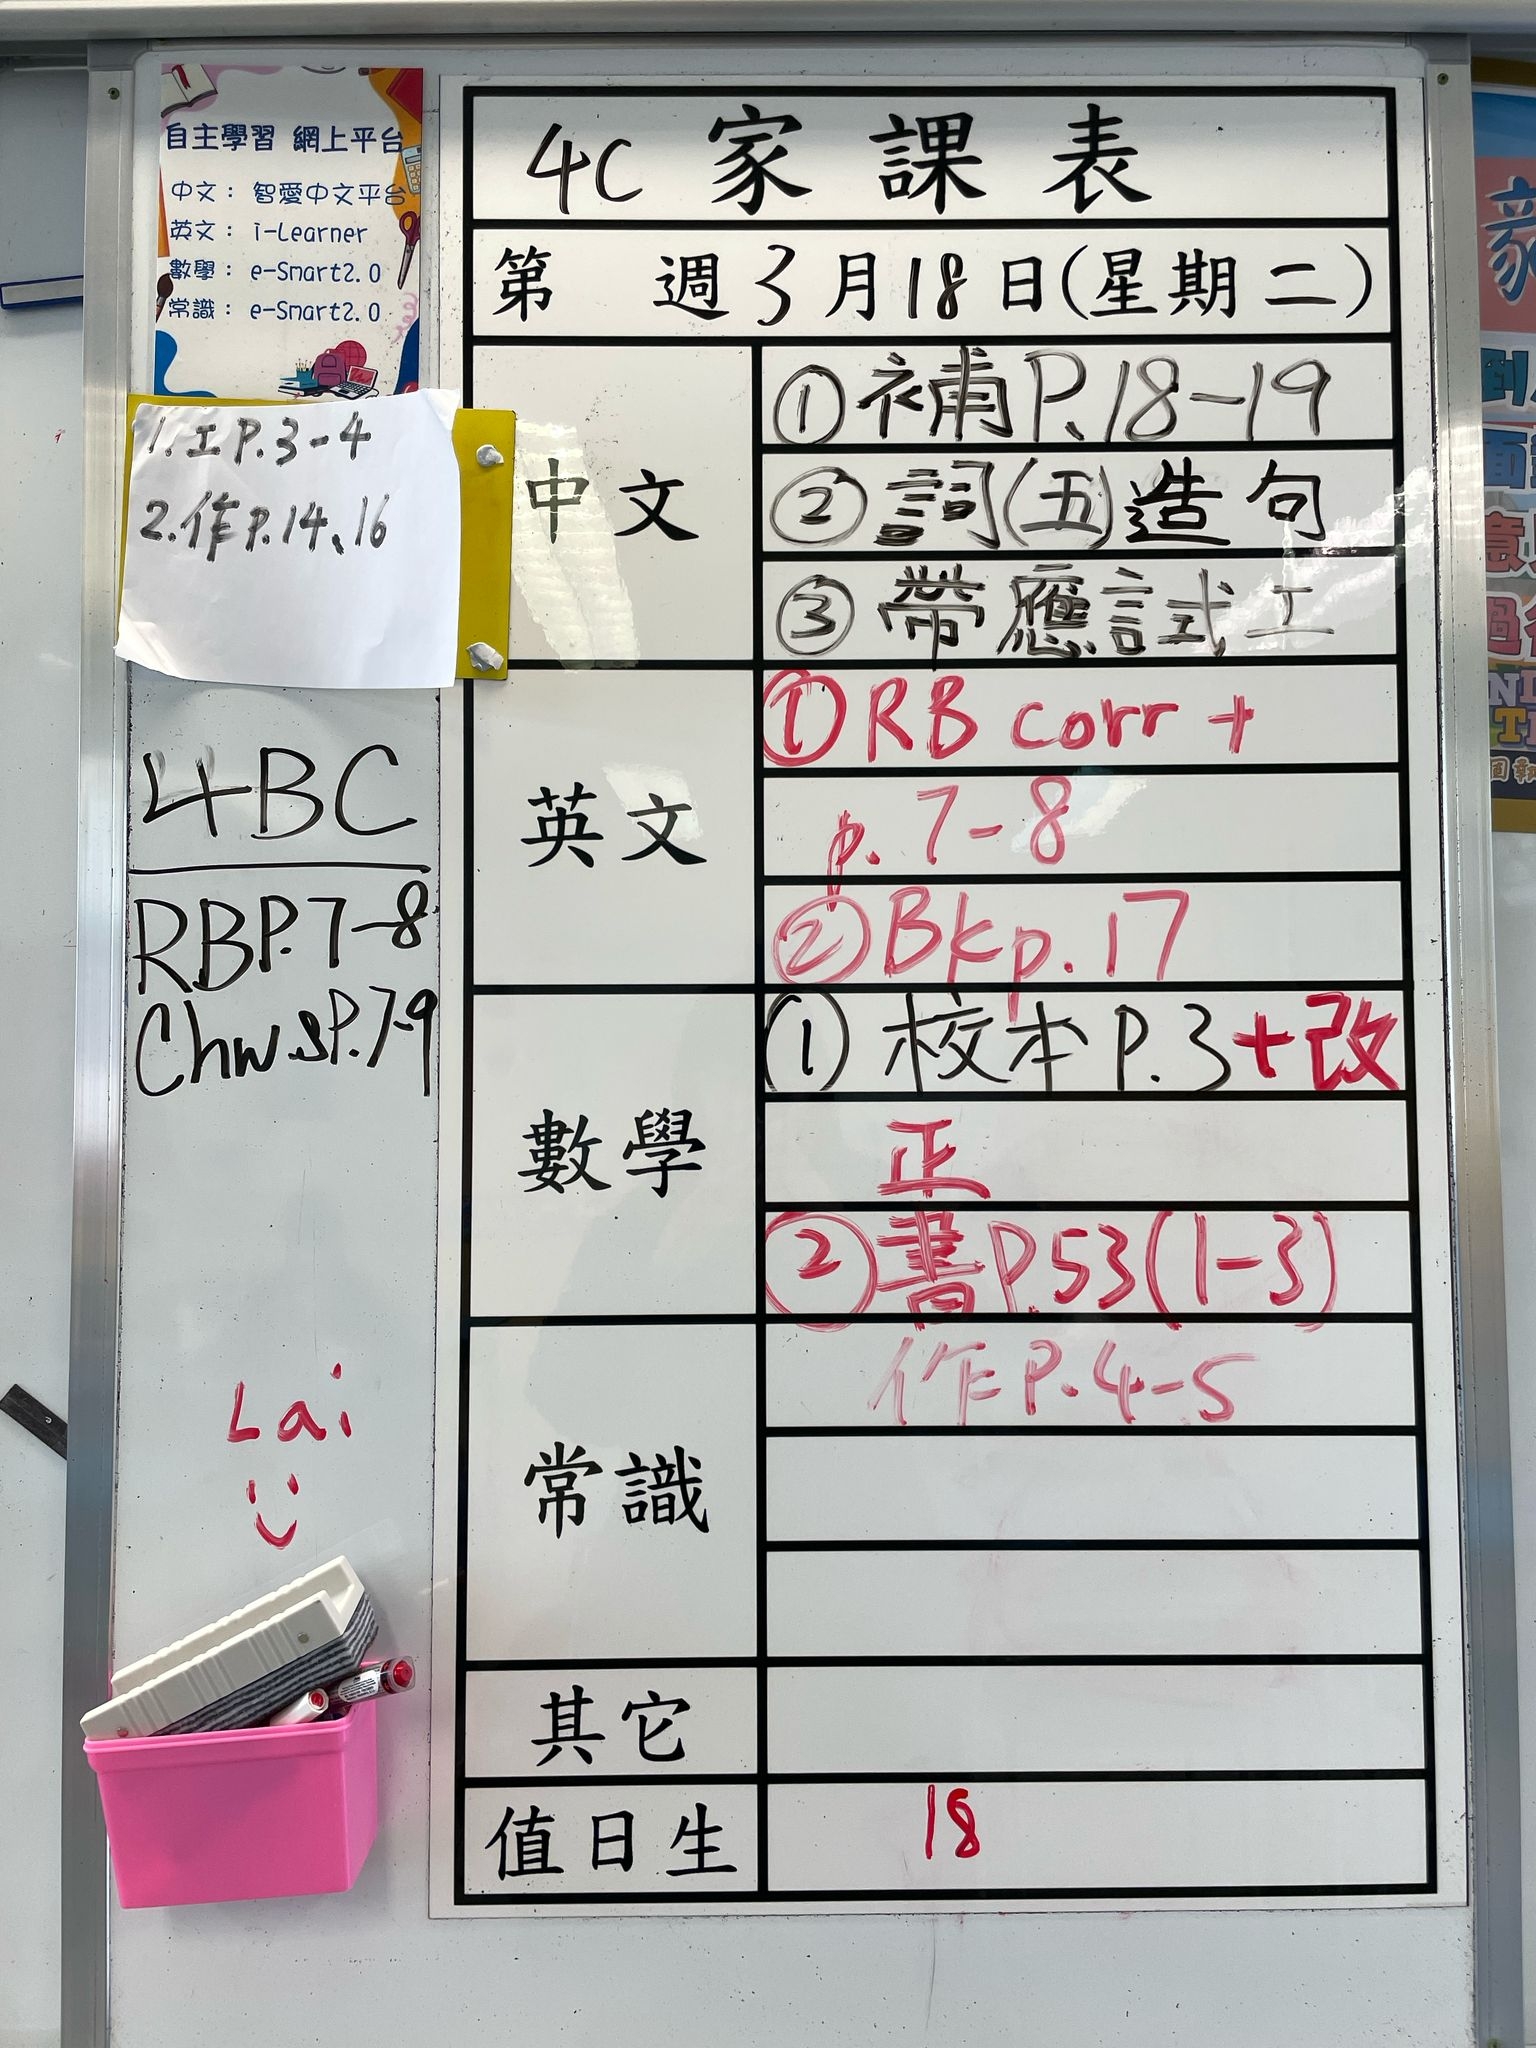 自主學習 網上平台
中文： 智愛中文平台
英文： i-Learner
數學： e-Smart2.0
常識： e-Smart2.0
1.工P.3-4
2.作P.14、16
4BC
RBP.7-8
Chw.sP.7-9
Lai
4C 家課表
第 週3月18日(星期二)
中文
①補P.18-19
②詞(五)造句
③帶應試工
英文
①RB corr +
p.7-8
②Bk p.17
數學
①校本P.3+改
正
②書P.53(1-3)
常識
作P.4-5
其它
值日生
18